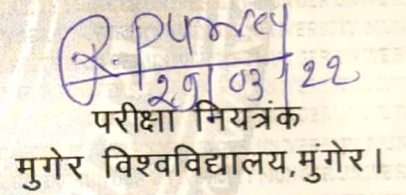 R. Pu
29/03/22
परीक्षा नियत्रंक
मुगेर विश्वविद्यालय,मुंगेर।